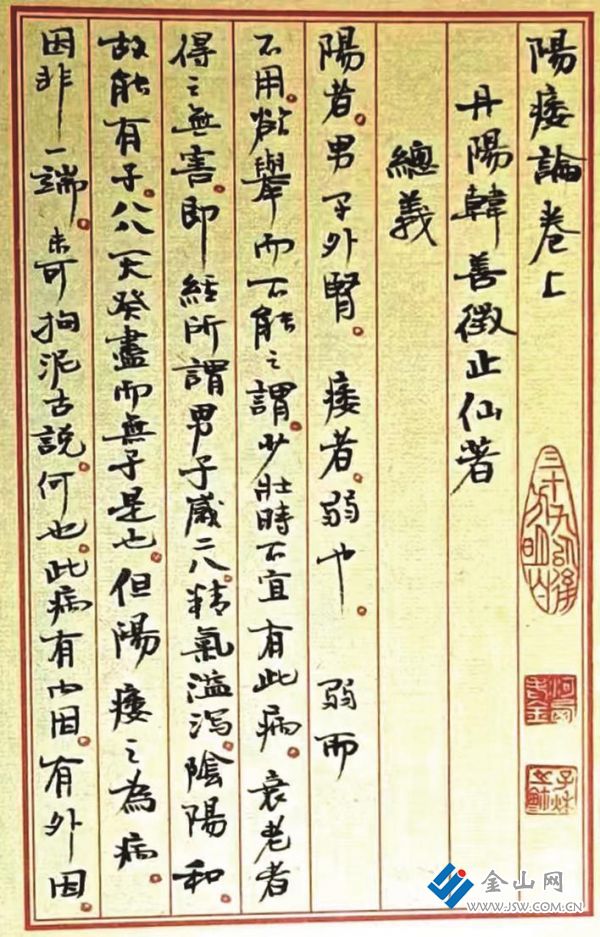 陽痿論卷上
丹陽韓善徵止仙著
總義
陽者。男子外腎。痿者。弱也。弱而
不用。欲舉而不能之謂。少壯時不宜有此病。衰老者
得之無害。即經所謂男子歲二八。精氣溢瀉。陰陽和
故能有子。八八天癸盡而無子是也。但陽痿之為病。
因非一端。未可拘泥古說。何也。此病有內因。有外因
金山网
WWW.JSW.COM.CN